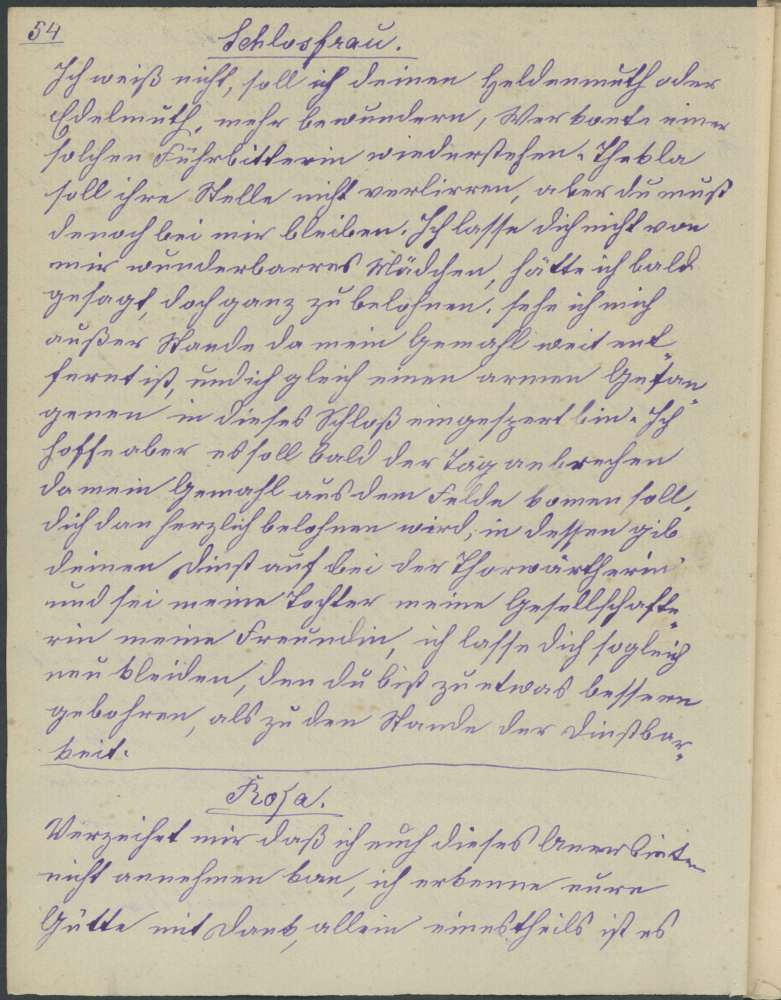 54
Schlosfrau.
Ich weiß nicht, soll ich deinen Heldenmuth oder
Edelmuth, mehr bewundern, Wer konte einer
solchen Führbitterin wiederstehen. Thekla
soll ihre Stelle nicht verlirren, aber du must
denoch bei mir bleiben. Ich lasse dich nicht von
mir wunderbarres Mädchen, hätte ich bald
gesagt, doch ganz zu belohnen, sehe ich mich
außer Stande da mein Gemahl weit ent
fernt ist, und ich gleich einen armen Gefan
genen in dieses Schloß eingespert bin. Ich
hoffe aber es soll bald der Tag anbrechen
da mein Gemahl aus dem Felde komen soll,
dich dan herzlich belohnen wird, in dessen gib
deinen Dinst auf bei der Thorwärtherin
und sei meine Tochter meine Gesellschafte
rin meine Freundin, ich lasse dich sogleich
neu kleiden, den du bist zu etwas bessern
gebohren, als zu den Stande der Dinstbar
keit.
Rosa.
Verzeihet mir daß ich euch dieses Anerbieten
nicht annehmen kan, ich erkenne eure
Gütte mit Dank, allein einestheils ist es